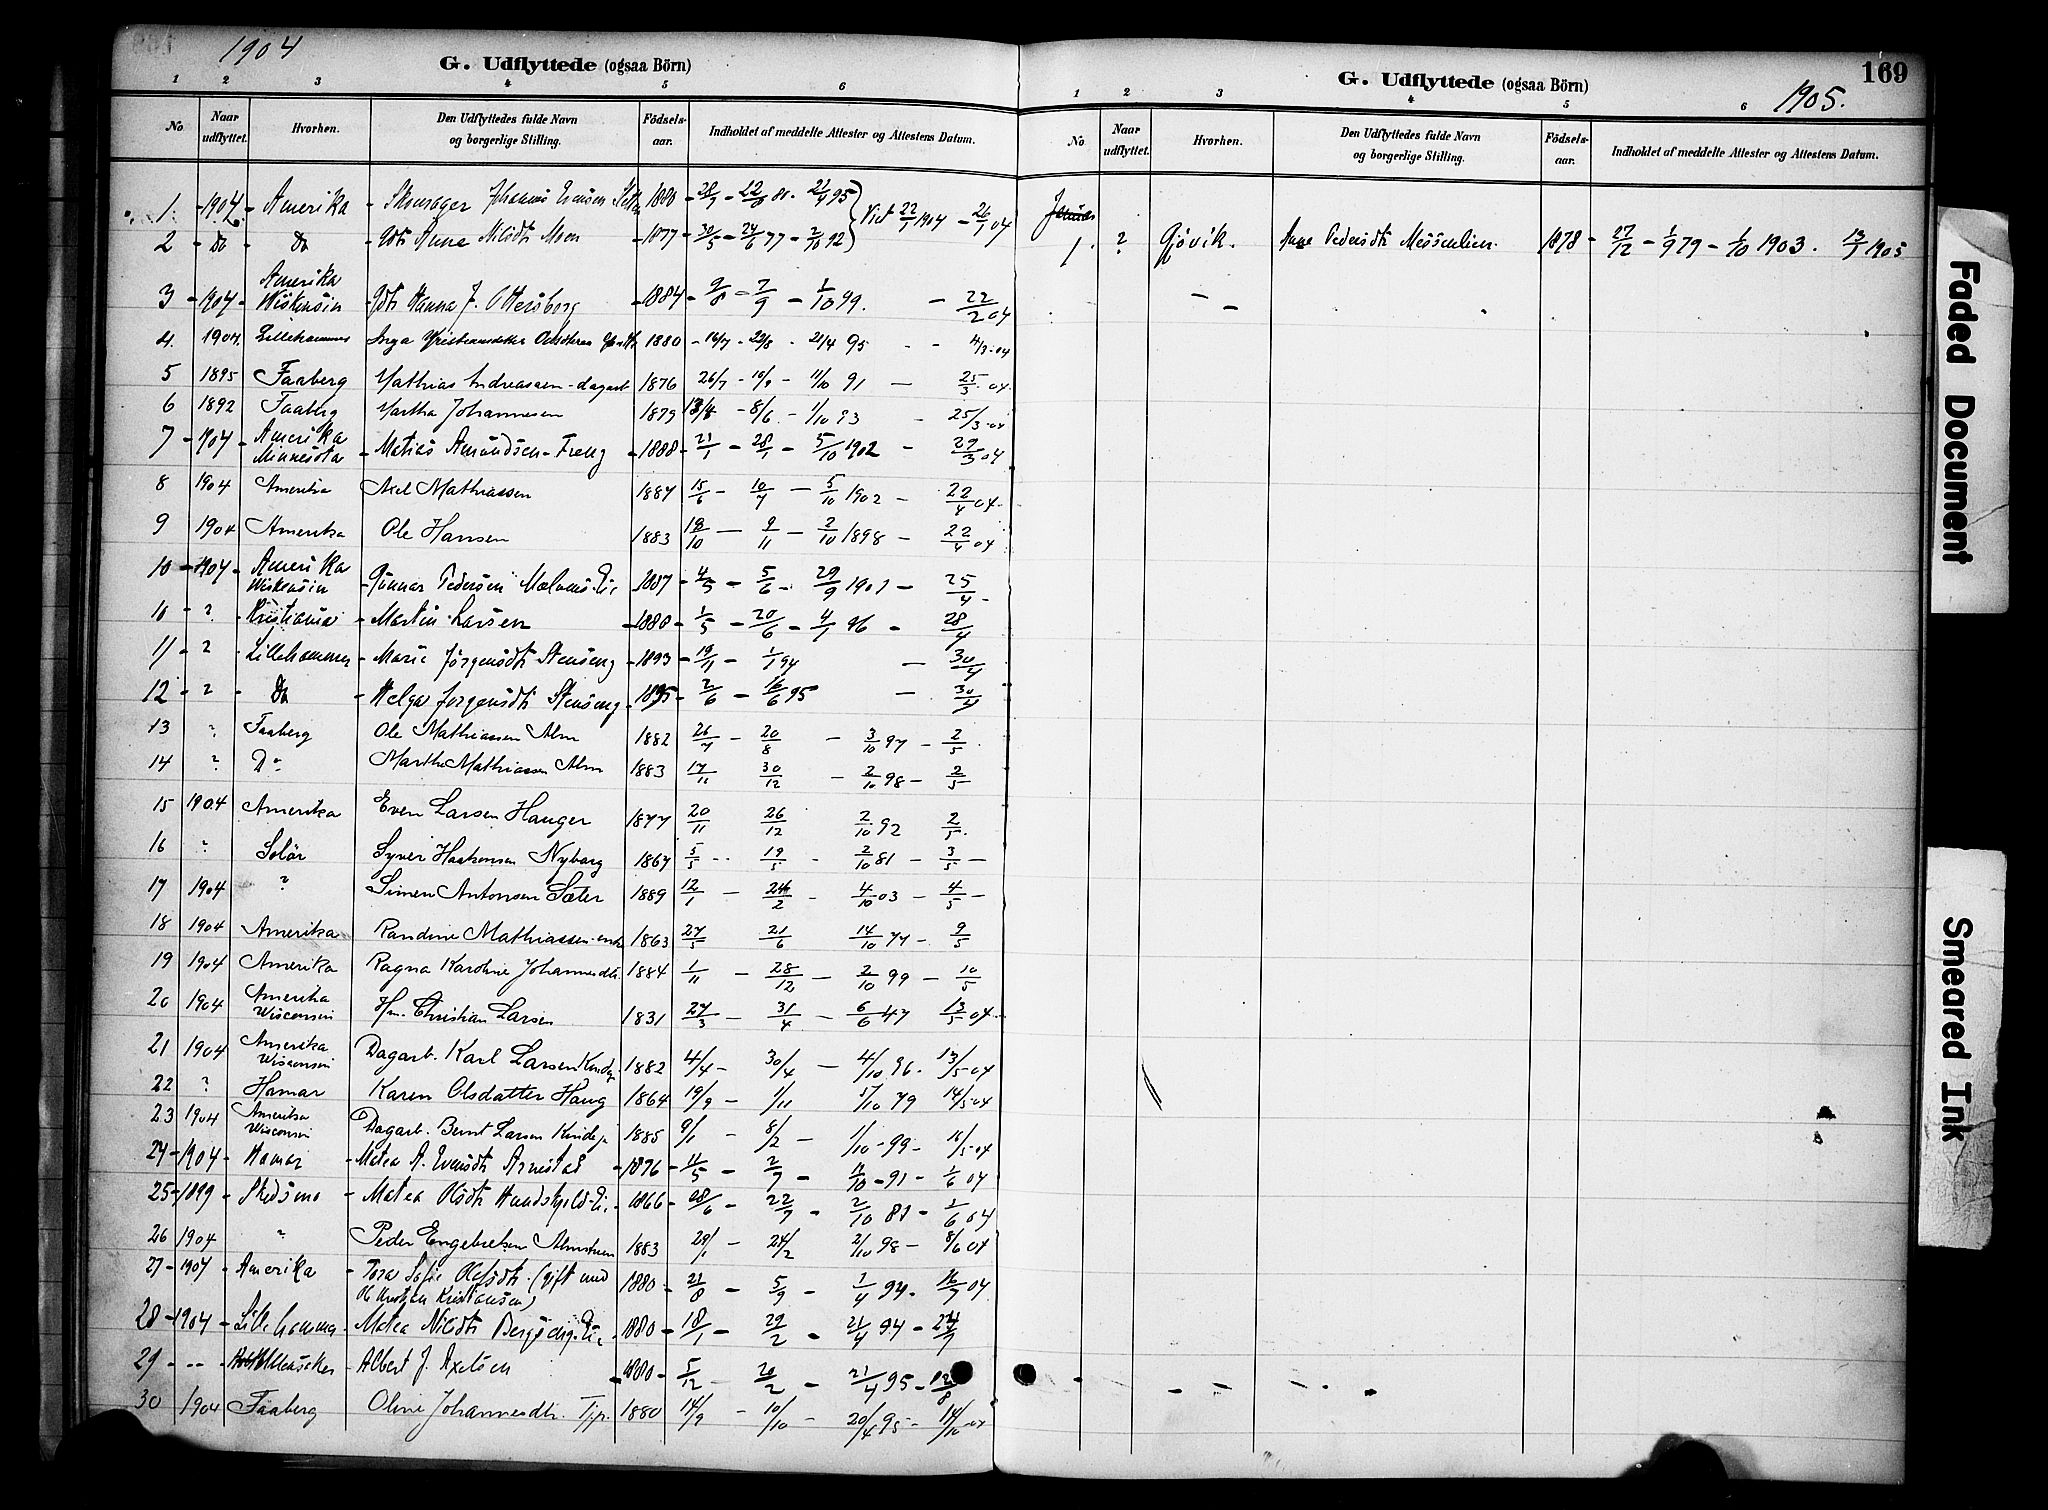 1904
G. Udflyttede (ogsaa Börn)
1 2 3 4 5 6
No. Naar udflyttet. Hvorhen. Den Udflyttedes fulde Navn og borgerlige Stilling. Födsels-aar. Indholdet af meddelte Attester og Attestens Datum.
1. - 1904 - Amerika - Skomager Johannes Evensen 1880 - 28/7 - 22/8 80. 21/4 95 Viet 22/1 1904 - 26/1 04
2 - Do - Do - Anna Nilsdtr Moen - 1877 - 30/5 - 24/6 77 - 2/10 92
3 - 1904 - Amerika Wiskonsin - Hanna J. Ottersborg - 1884 - 9/8 - 7/9 - 1/10 99. - 22/2 04
4. 1904. Lillehammer Inga 1880 - 16/7 - 22/8 - 21/4 95 - - 4/3-04
5 1895 Faaberg Mathias Andreassen - dagarb 1876 26/7 - 10/9 - 11/10 91 - 25/3 04.
6 1892 Faaberg Martha Johannesen 1879 - 8/6 - 1/10 93 - 25/3-04
7 - 1904 - Amerika Minnesota - Matias Amundsen - Freng - 1888 - 21/1 - 28/1 - 5/10 1902 - 29/3 04
8 1904 Amerika Axel Mathiassen 1887 15/6 - 10/7 - 5/10 1902 - 22/4 04.
9 1904 Amerika Ole Hansen 1883 18/10 - 9/11 - 2/10 1898 - 22/4 04
10 - 1904 - Amerika Wiskonsin - Gunnar Pedersen 1887 - 4/5 - 5/6 - 29/9 1901 - 25/4 -
10 - ? - Kristiania - Martin Larsen - 1880 - 1/5 - 20/6 - 4/1 96 - 28/4
11 - ? - Lillehammer - Marie Jörgensdtr Stenseng - 1893 - 19/11 - 1/1 94 - 30/4
12 - ? - Do - Helga Jörgensdtr Stenseng - 1895 - 2/6 - 16/6 95 - 30/4
13 ? Faaberg Ole Mathiassen Alm 1882 26/7 - 20/8 - 3/10 97 - 2/5.
14 ? Do Marthe Mathiassen Alm 1883 17/11 30/12 - 2/10 98 - 2/5
15 1904 Amerika Even Larsen Hauger 1877 20/11 26/12 2/10 92 2/5.
16 ? Solör Syver Haakensen Nyborg 1867 5/5 - 19/5 - 2/10 81 - 3/5 -
17 1904 ? Simen Antonsen Sæter 1889 12/1 - 24/2 - 4/10 03 - 4/5 -
18 1904 Amerika Randine Mathiassen - enke 1863 27/5 21/6 14/10 77 - 9/5
19 1904 Amerika Ragna Karoline Johannesdtr. 1884 1/11 - 28/12 - 2/10 99 - 10/5
20 1904 Amerika Wisconsin Christian Larsen 1831 27/3 - 31/4 - 6/6 47 13/5 04.
21 1904 Amerika Wisconsin Dagarb. Karl Larsen 1882 4/4 - 30/4 - 4/10 96. 13/5 04
22 ? Hamar Karen Olsdatter Haug 1864 19/9 - 1/11 5/10 79 14/5 04
23 1904 Amerika Wisconsin Dagarb. Bernt Larsen 1885 9/1 - 8/2 - 1/10 - 99 - 18/5-04
24 - 1904 - Hamar - Matea A. Evensdtr Arnestad - 1876 - 11/5 - 2/7 - 11/10 - 91 - 1/6 04
25 - 1899 - Skedsmo - Matea Olsdtr 1866 - 28/6 - 22/7 - 2/10 81 - 1/6 04
26 1904 " Peder Engebretsen 1883 29/1 - 24/2 2/10 98 - 8/6 04
27 - 1904 - Amerika - Tora Sofie Olsdtr. (gift med Kristiansen) 1880 - 21/8 - 5/9 - 1/4 94. 16/7 04.
28 - 1904 - Lillehammer - Matea Nilsdtr Bergseng 1880 - 18/1 - 29/2 - 21/4 94 - 24/7
29 - - - Albert J. Axelsen - 1880 - 5/12 - 20/2 - 21/4 95 -
30 1904 Faaberg Oline Johannesdtr. Tjp. 1880 14/9 - 10/10 - 20/4 95 - 14/10-04
169
G. Udflyttede (ogsaa Börn)
1905.
1 2 3 4 5 6
No Naar udflyttet. Hvorhen. Den Udflyttedes fulde Navn og borgerlige Stilling. Födsels-aar. Indholdet af meddelte Attester og Attestens Datum.
1. ? Gjövik. Anne Pedersdtr Messenlien. 1878 - 27/12 - 1/9 79 - 1/10 1903. 13/1 1905
Faded Document
Smeared Ink